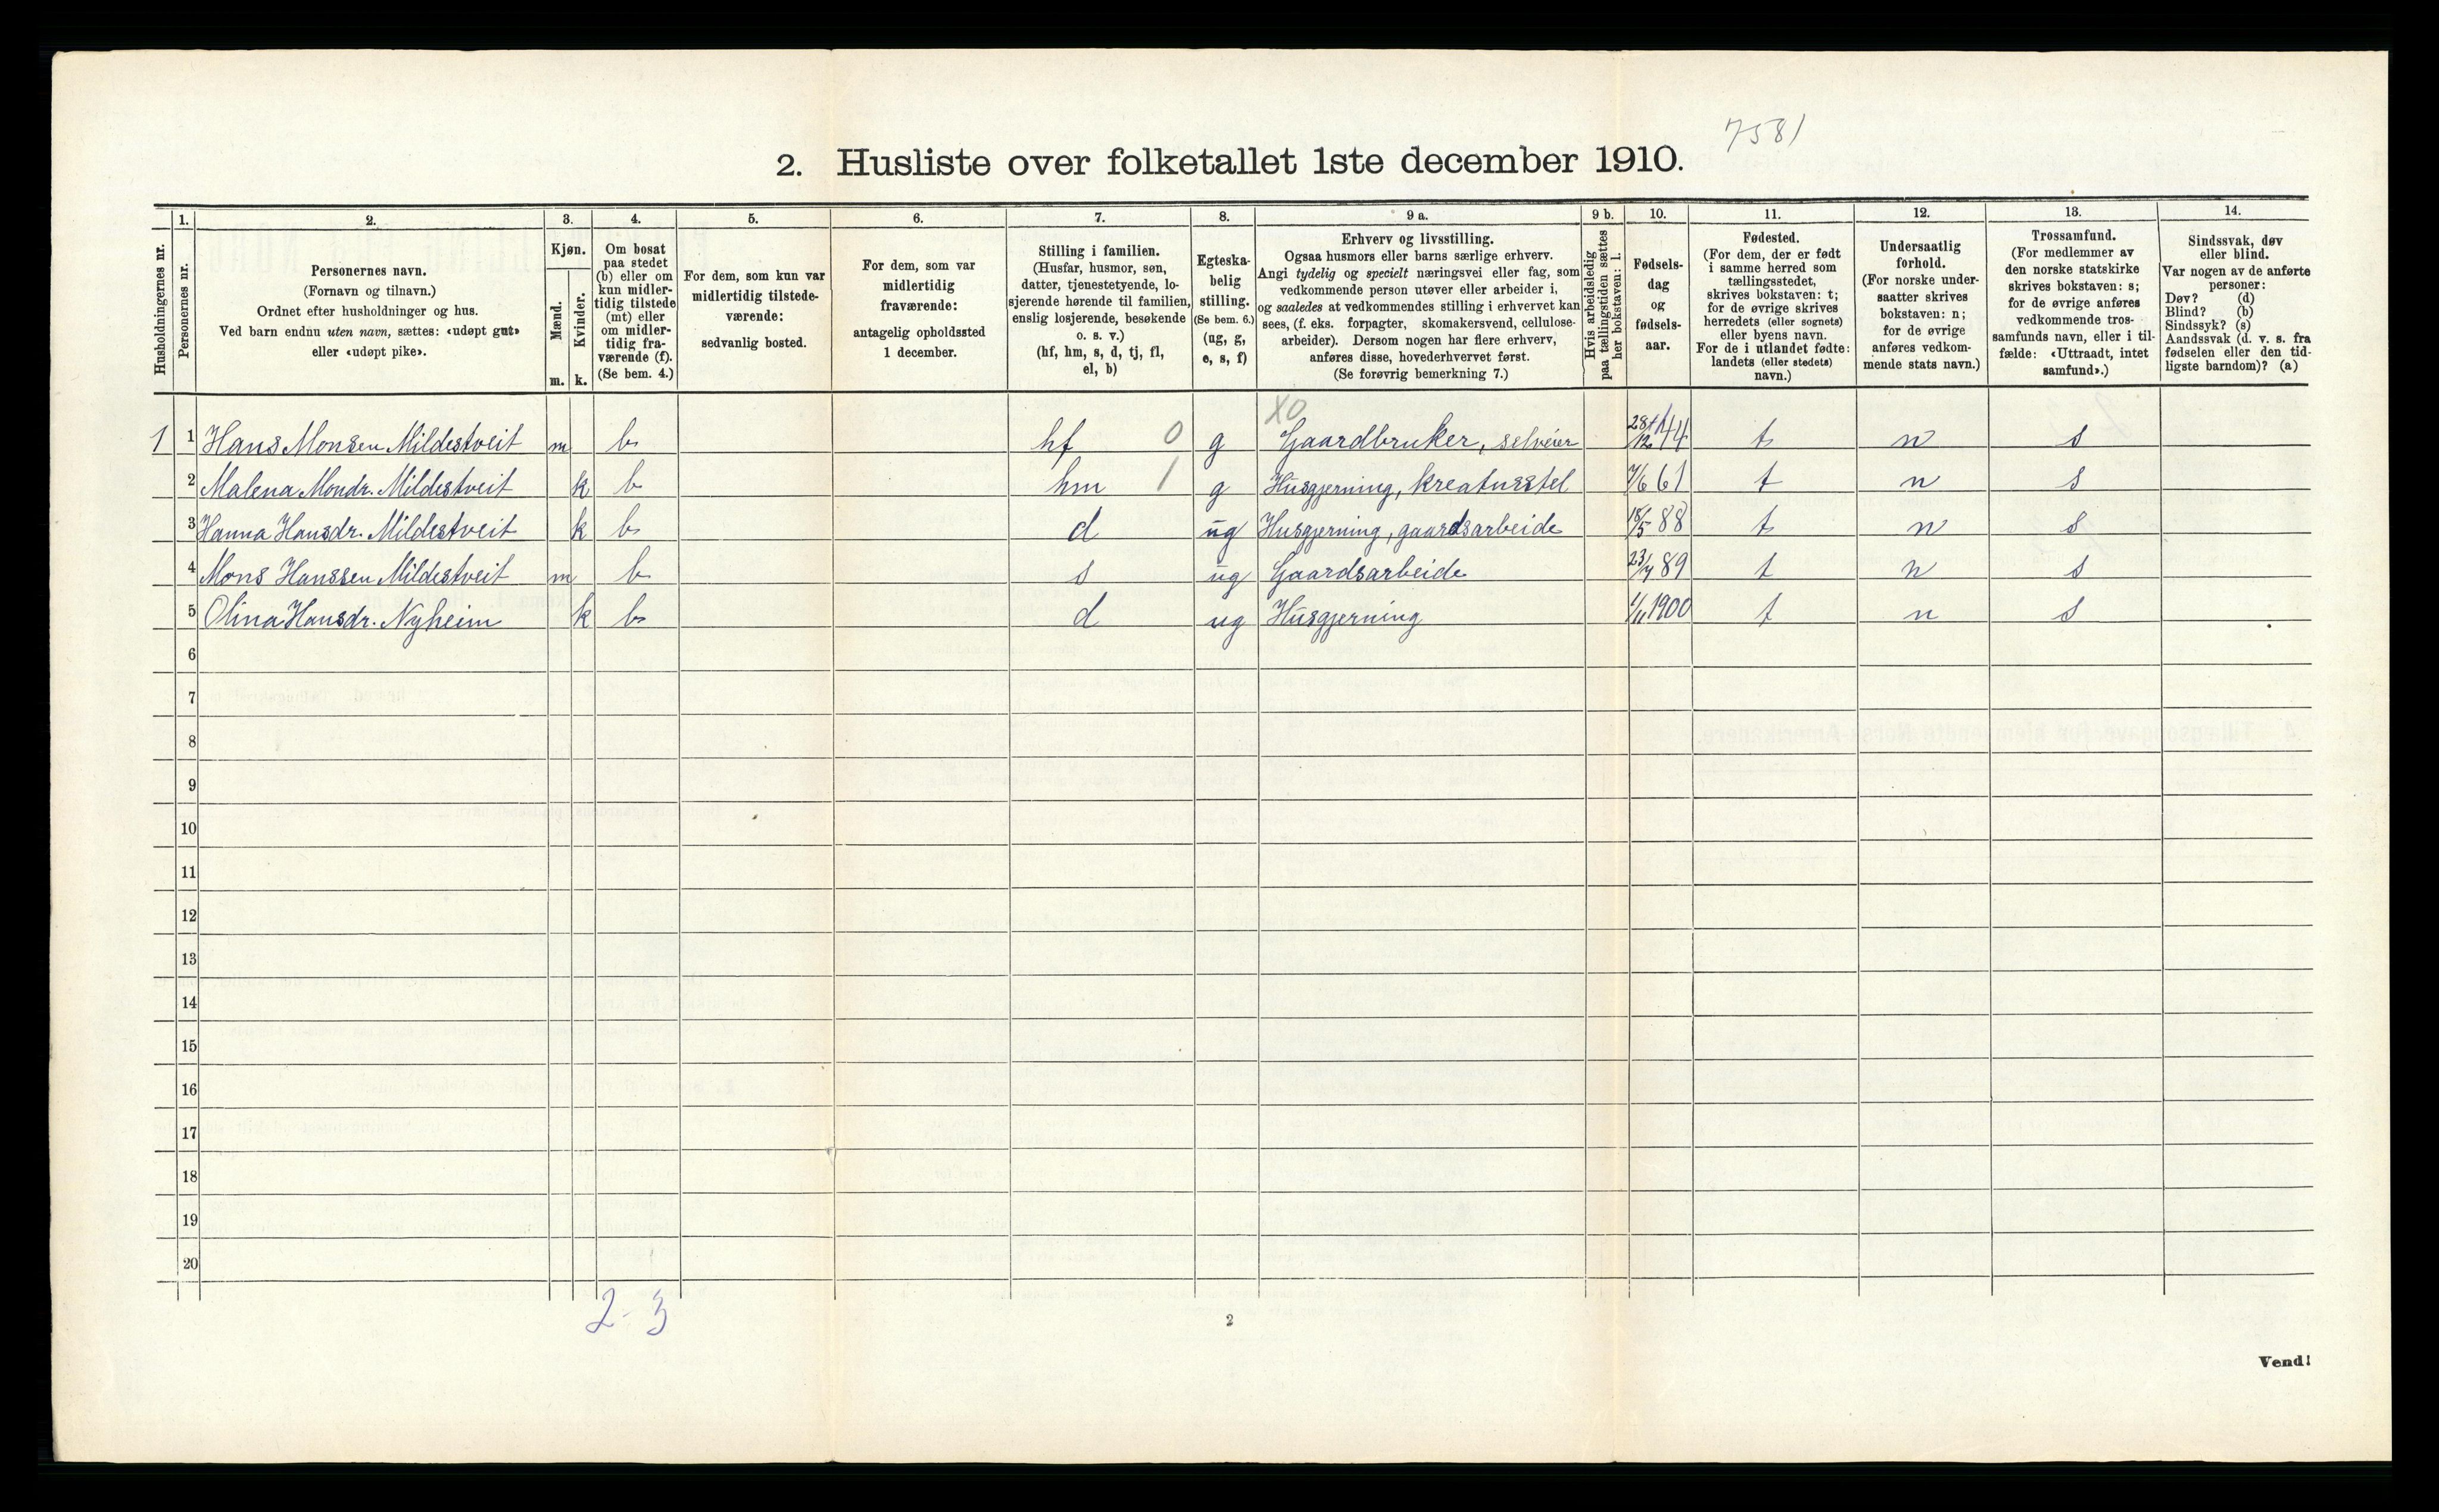 7581
2. Husliste over folketallet 1ste december 1910.
Husholdningernes nr.
1.
Personernes nr.
2.
Personernes navn.
(Fornavn og tilnavn.)
Ordnet efter husholdninger og hus.
Ved barn endnu uten navn, sættes: «udøpt gut»
eller «udøpt pike».
3.
Kjøn.
Mænd.
Kvinder.
m. k.
4.
Om bosat
paa stedet
(b) eller om
kun midler-
tidig tilstede
(mt) eller
om midler-
tidig fra-
værende (f).
(Se bem. 4.)
5.
For dem, som kun var
midlertidig tilstede-
værende:
sedvanlig bosted.
6.
For dem, som var
midlertidig
fraværende:
antagelig opholdssted
1 december.
7.
Stilling i familien.
(Husfar, husmor, søn,
datter, tjenestetyende, lo-
sjerende hørende til familien,
enslig losjerende, besøkende
o. s. v.)
(hf, hm, s, d, tj, fl,
el, b)
8.
Egteska-
belig
stilling.
(Se bem. 6.)
(ug, g,
e, s, f)
9 a.
Erhverv og livsstilling.
Ogsaa husmors eller barns særlige erhverv.
Angi tydelig og specielt næringsvei eller fag, som
vedkommende person utøver eller arbeider i,
og saaledes at vedkommendes stilling i erhvervet kan
sees, (f. eks. forpagter, skomakersvend, cellulose-
arbeider). Dersom nogen har flere erhverv,
anføres disse, hovederhvervet først.
(Se forøvrig bemerkning 7.)
9 b.
Hvis arbeidsledig
paa tællingstiden sættes
her bokstaven: l.
10.
Fødsels-
dag
og
fødsels-
aar.
11.
Fødested.
(For dem, der er født
i samme herred som
tællingsstedet,
skrives bokstaven: t;
for de øvrige skrives
herredets (eller sognets)
eller byens navn.
For de i utlandet fødte:
landets (eller stedets)
navn.)
12.
Undersaatlig
forhold.
(For norske under-
saatter skrives
bokstaven: n;
for de øvrige
anføres vedkom-
mende stats navn.)
13.
Trossamfund.
(For medlemmer av
den norske statskirke
skrives bokstaven: s;
for de øvrige anføres
vedkommende tros-
samfunds navn, eller i til-
fælde: «Uttraadt, intet
samfund».)
14.
Sindssvak, døv
eller blind.
Var nogen av de anførte
personer:
Døv? (d)
Blind? (b)
Sindssyk? (s)
Aandssvak (d. v. s. fra
fødselen eller den tid-
ligste barndom)? (a)
X0
1 1 Hans Monsen Mildestveit m b hf 0 g Gaardbruker, selveier 28/12 44 t n s
2 Malena Monsdr. Mildestveit k b hm 1 g Husgjerning, kreaturstel 7/6 61 t n s
3 Hanna Hansdr. Mildestveit k b d ug Husgjerning, gaardsarbeide 18/5 88 t n s
4 Mons Hanssen Mildestveit m b s ug Gaardsarbeide 23/7 89 t n s
5 Olina Hansdr. Nyheim k b d ug Husgjerning 1/11 1900 t n s
6
7
8
9
10
11
12
13
14
15
16
17
18
19
20
2-3
2
Vend!